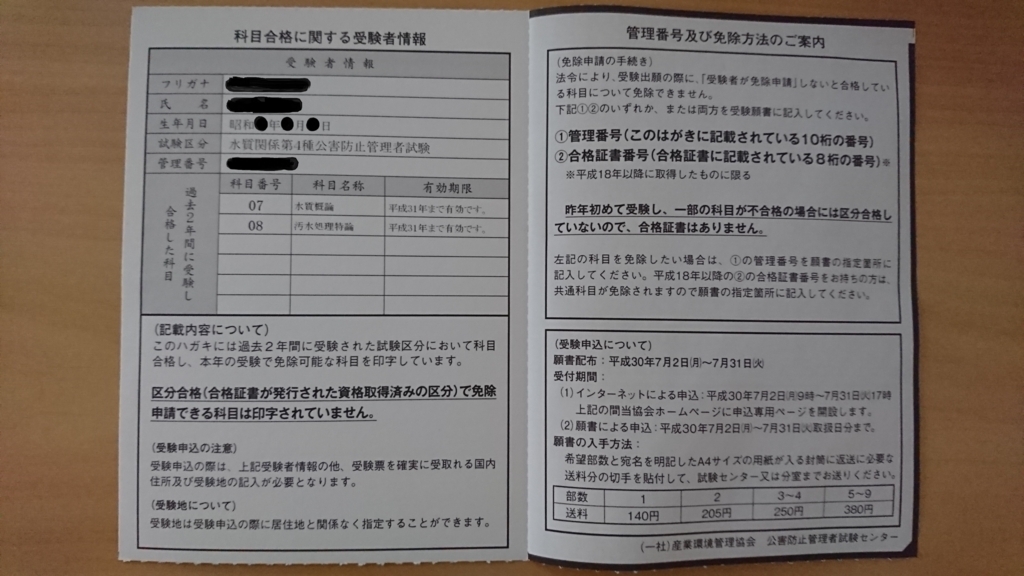 科目合格に関する受験者情報
受験者情報
フリガナ
氏　名
生年月日　昭和 年 月 日
試験区分　水質関係第4種公害防止管理者試験
管理番号
過去2年間に受験し
合格した科目
科目番号　科目名称　有効期限
07　水質概論　平成31年まで有効です。
08　汚水処理特論　平成31年まで有効です。
(記載内容について)
このハガキには過去2年間に受験された試験区分において科目
合格し、本年の受験で免除可能な科目を印字しています。
区分合格(合格証書が発行された資格取得済みの区分)で免除
申請できる科目は印字されていません。
(受験申込の注意)
受験申込の際は、上記受験者情報の他、受験票を確実に受取れる国内
住所及び受験地の記入が必要となります。
(受験地について)
受験地は受験申込の際に居住地と関係なく指定することができます。
管理番号及び免除方法のご案内
(免除申請の手続き)
法令により、受験出願の際に、「受験者が免除申請」しないと合格してい
る科目について免除できません。
下記①②のいずれか、または両方を受験願書に記入してください。
①管理番号(このはがきに記載されている10桁の番号)
②合格証書番号(合格証書に記載されている8桁の番号)※
※平成18年以降に取得したものに限る
昨年初めて受験し、一部の科目が不合格の場合には区分合格し
ていないので、合格証書はありません。
左記の科目を免除したい場合は、①の管理番号を願書の指定箇所に
記入してください。平成18年以降の②の合格証書番号をお持ちの方は、
共通科目が免除されますので願書の指定箇所に記入してください。
(受験申込について)
願書配布：平成30年7月2日㈪～7月31日㈫
受付期間：
(1)インターネットによる申込：平成30年7月2日㈪9時～7月31日㈫17時
上記の間当協会ホームページに申込専用ページを開設します。
(2)願書による申込：平成30年7月2日㈪～7月31日㈫取扱日分まで。
願書の入手方法：
希望部数と宛名を明記したA4サイズの用紙が入る封筒に返送に必要な
送料分の切手を貼付して、試験センター又は分室までお送りください。
部数　1　2　3～4　5～9
送料　140円　205円　250円　380円
(一社)産業環境管理協会　公害防止管理者試験センター